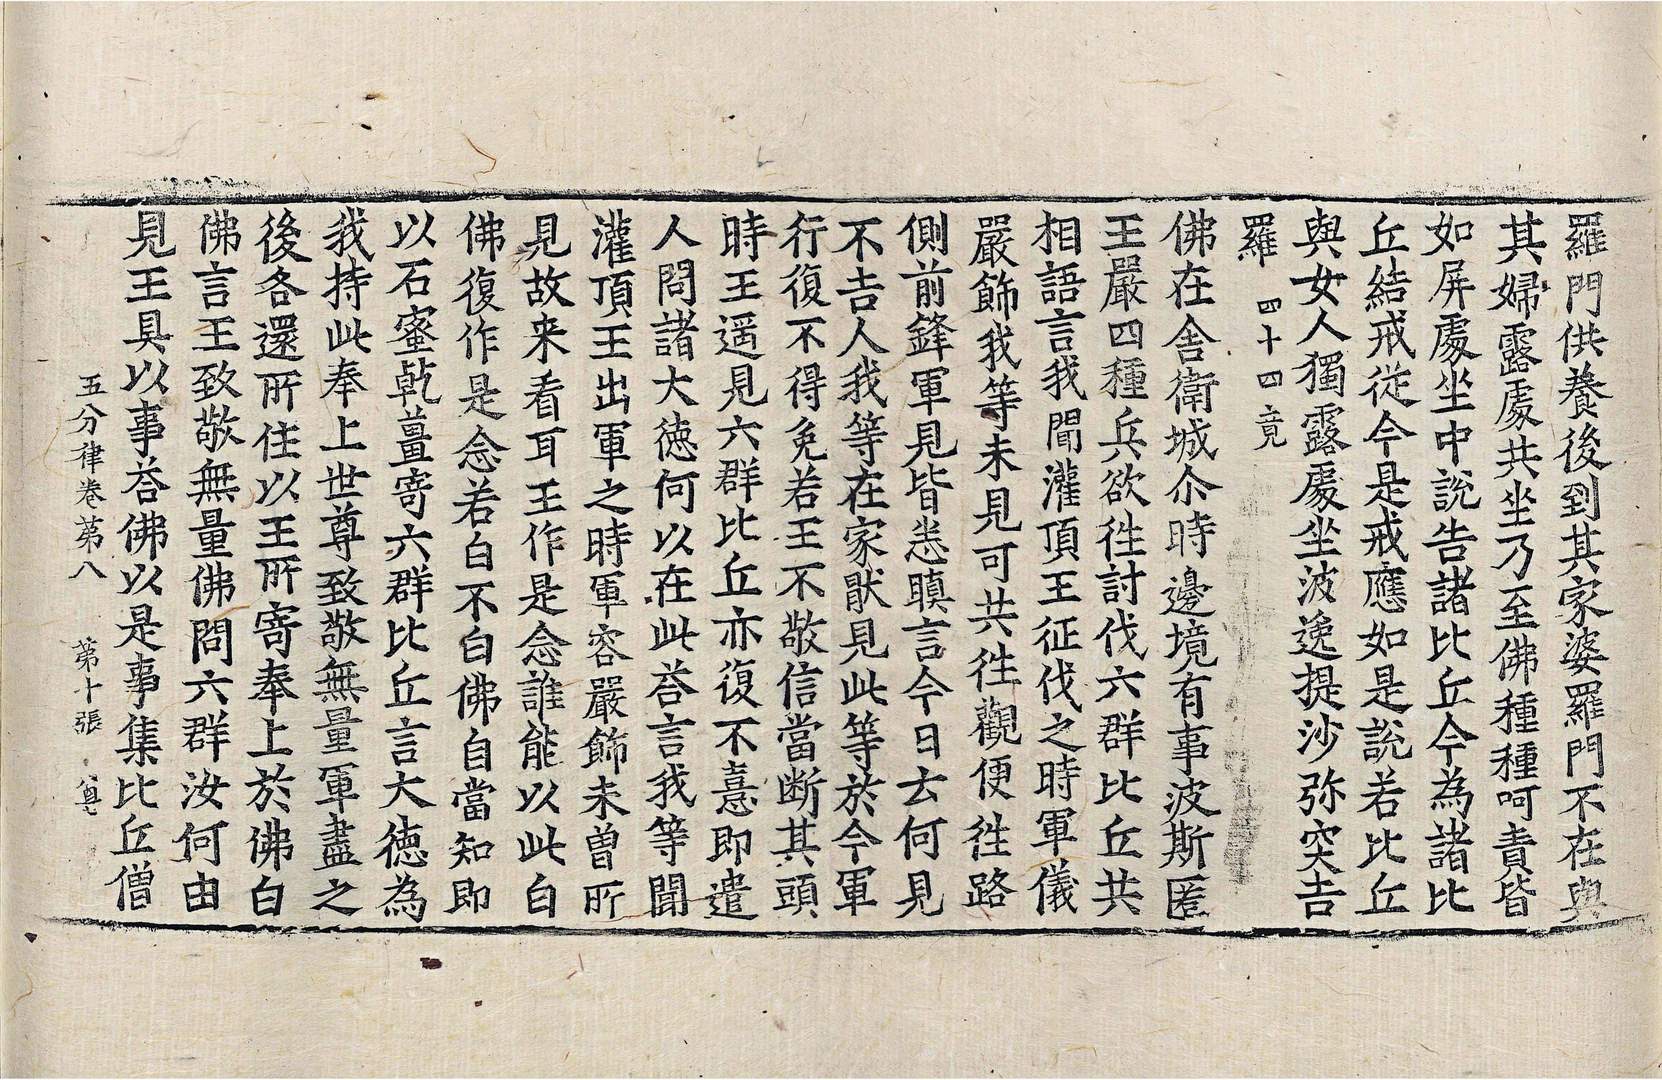 羅門供養後到其家婆羅門不在與
其婦露處共坐乃至佛種種呵責皆
如屏處坐中說告諸比丘今為諸比
丘結戒從今是戒應如是說若比丘
與女人獨露處坐波逸提沙弥突吉
羅 四十四竟
佛在舍衛城尒時邊境有事波斯匿
王嚴四種兵欲往討伐六群比丘共
相語言我聞灌頂王征伐之時軍儀
嚴飾我等未見可共往觀便往路
側前鋒軍見皆恚瞋言今日去何見
不吉人我等在家猒見此等於今軍
行復不得免若王不敬信當斷其頭
時王遥見六群比丘亦復不憙即遣
人問諸大徳何以在此荅言我等聞
灌頂王出軍之時軍容嚴飾未曽所
見故来看耳王作是念誰能以此白
佛復作是念若白不白佛自當知即
以石蜜乾薑寄六群比丘言大徳為
我持此奉上世尊致敬無量軍盡之
後各還所住以王所寄奉上於佛白
佛言王致敬無量佛問六群汝何由
見王具以事荅佛以是事集比丘僧
五分律卷第八 第十張 尊